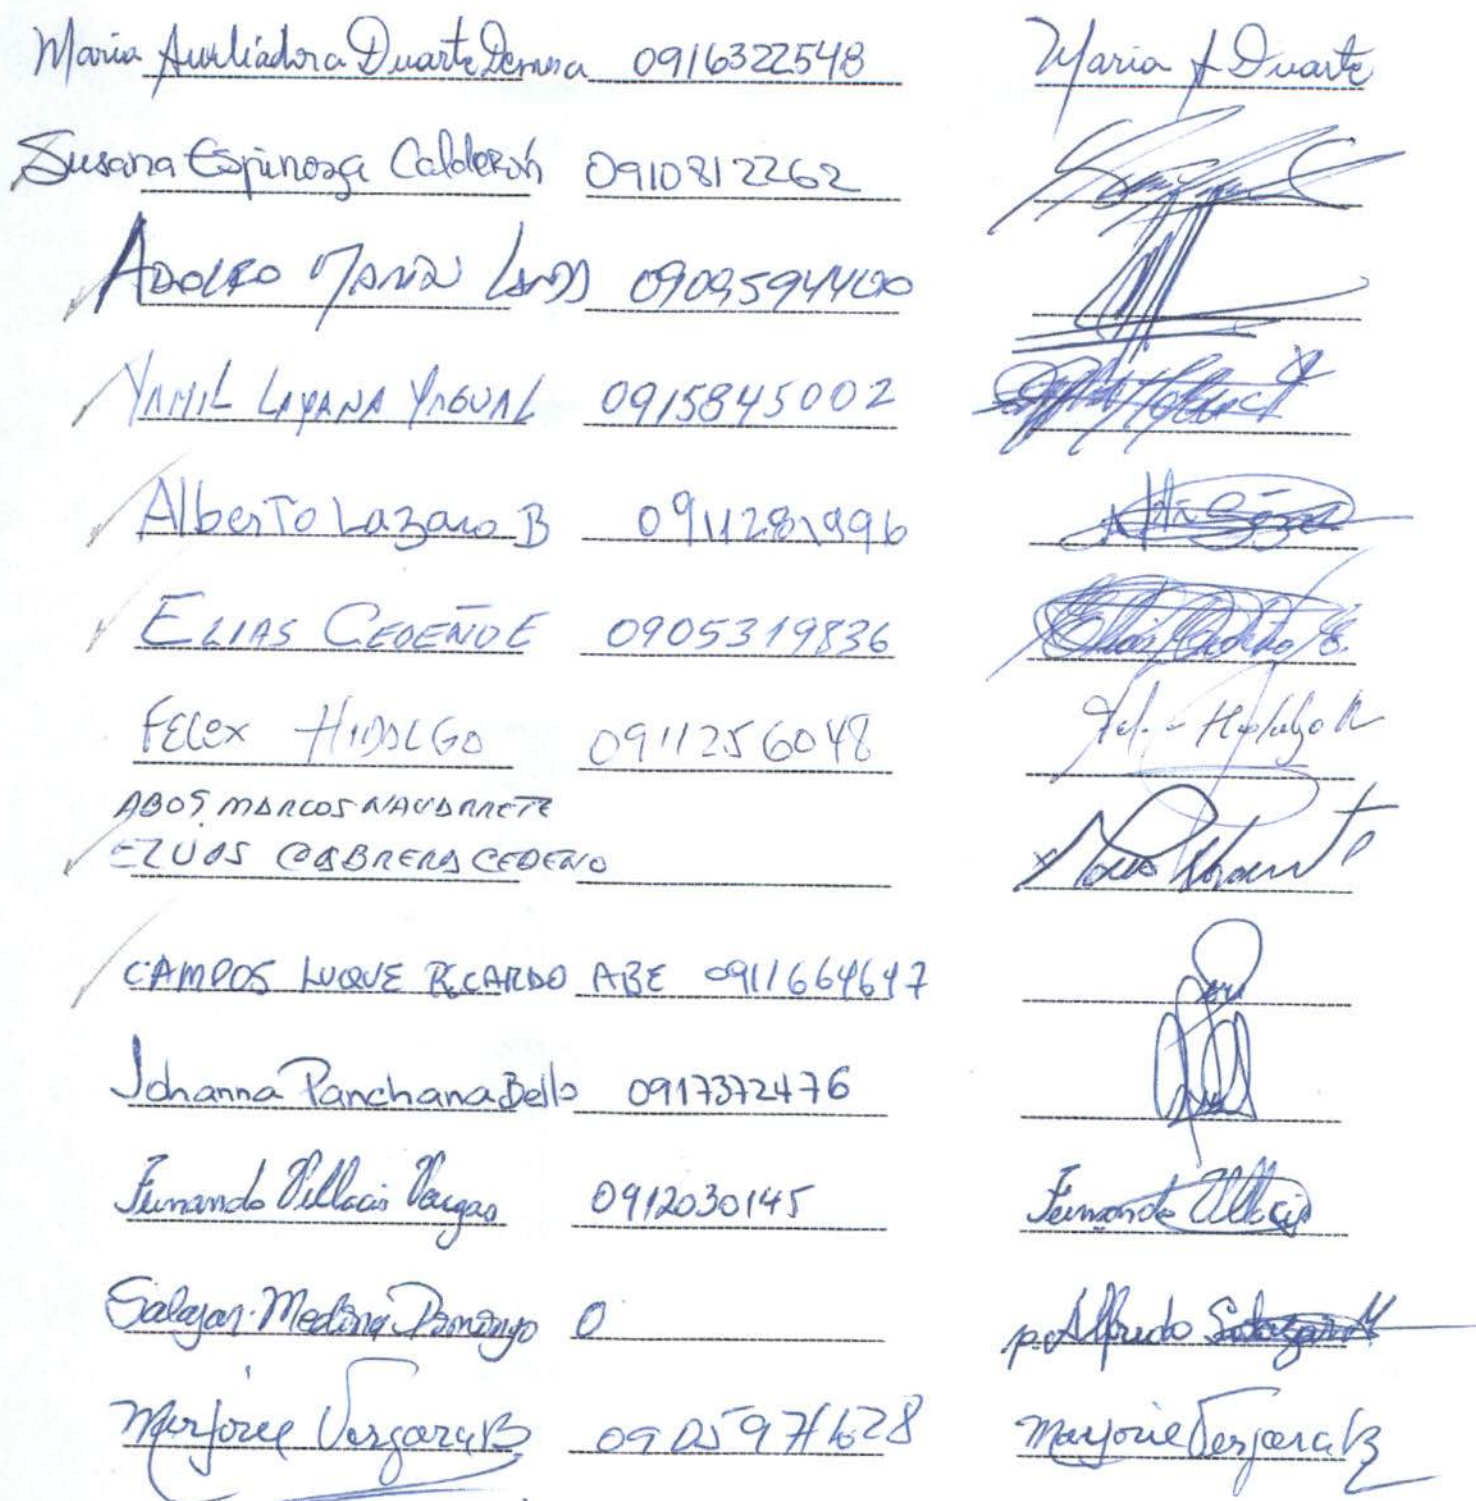 Maria Auxiliadora Duarte 0916322548 Maria A Duarte
Susana Espinoza Calderón 0910812262
ADOLFO MARIN
YAMIL LAYANA YAGUAL 0915845002
Alberto Lazaro B 0911281996
ELIAS CEDEÑO E 0905319836 Elias Cedeño E.
FELIX HIDALGO 0911256048 Hidalgo
ABOG. MARCOS NAVARRETE
CABRERA CEDEÑO
CAMPOS LUQUE RICARDO ABE 0911664647
Johanna Panchana Bello 0917372476
Fernando Villacis Vargas 0912030145 Fernando Villacis
Salazar Medina Domingo 0 p. Alfredo Salazar M
Marjorie Vergara B Marjorie Vergara B